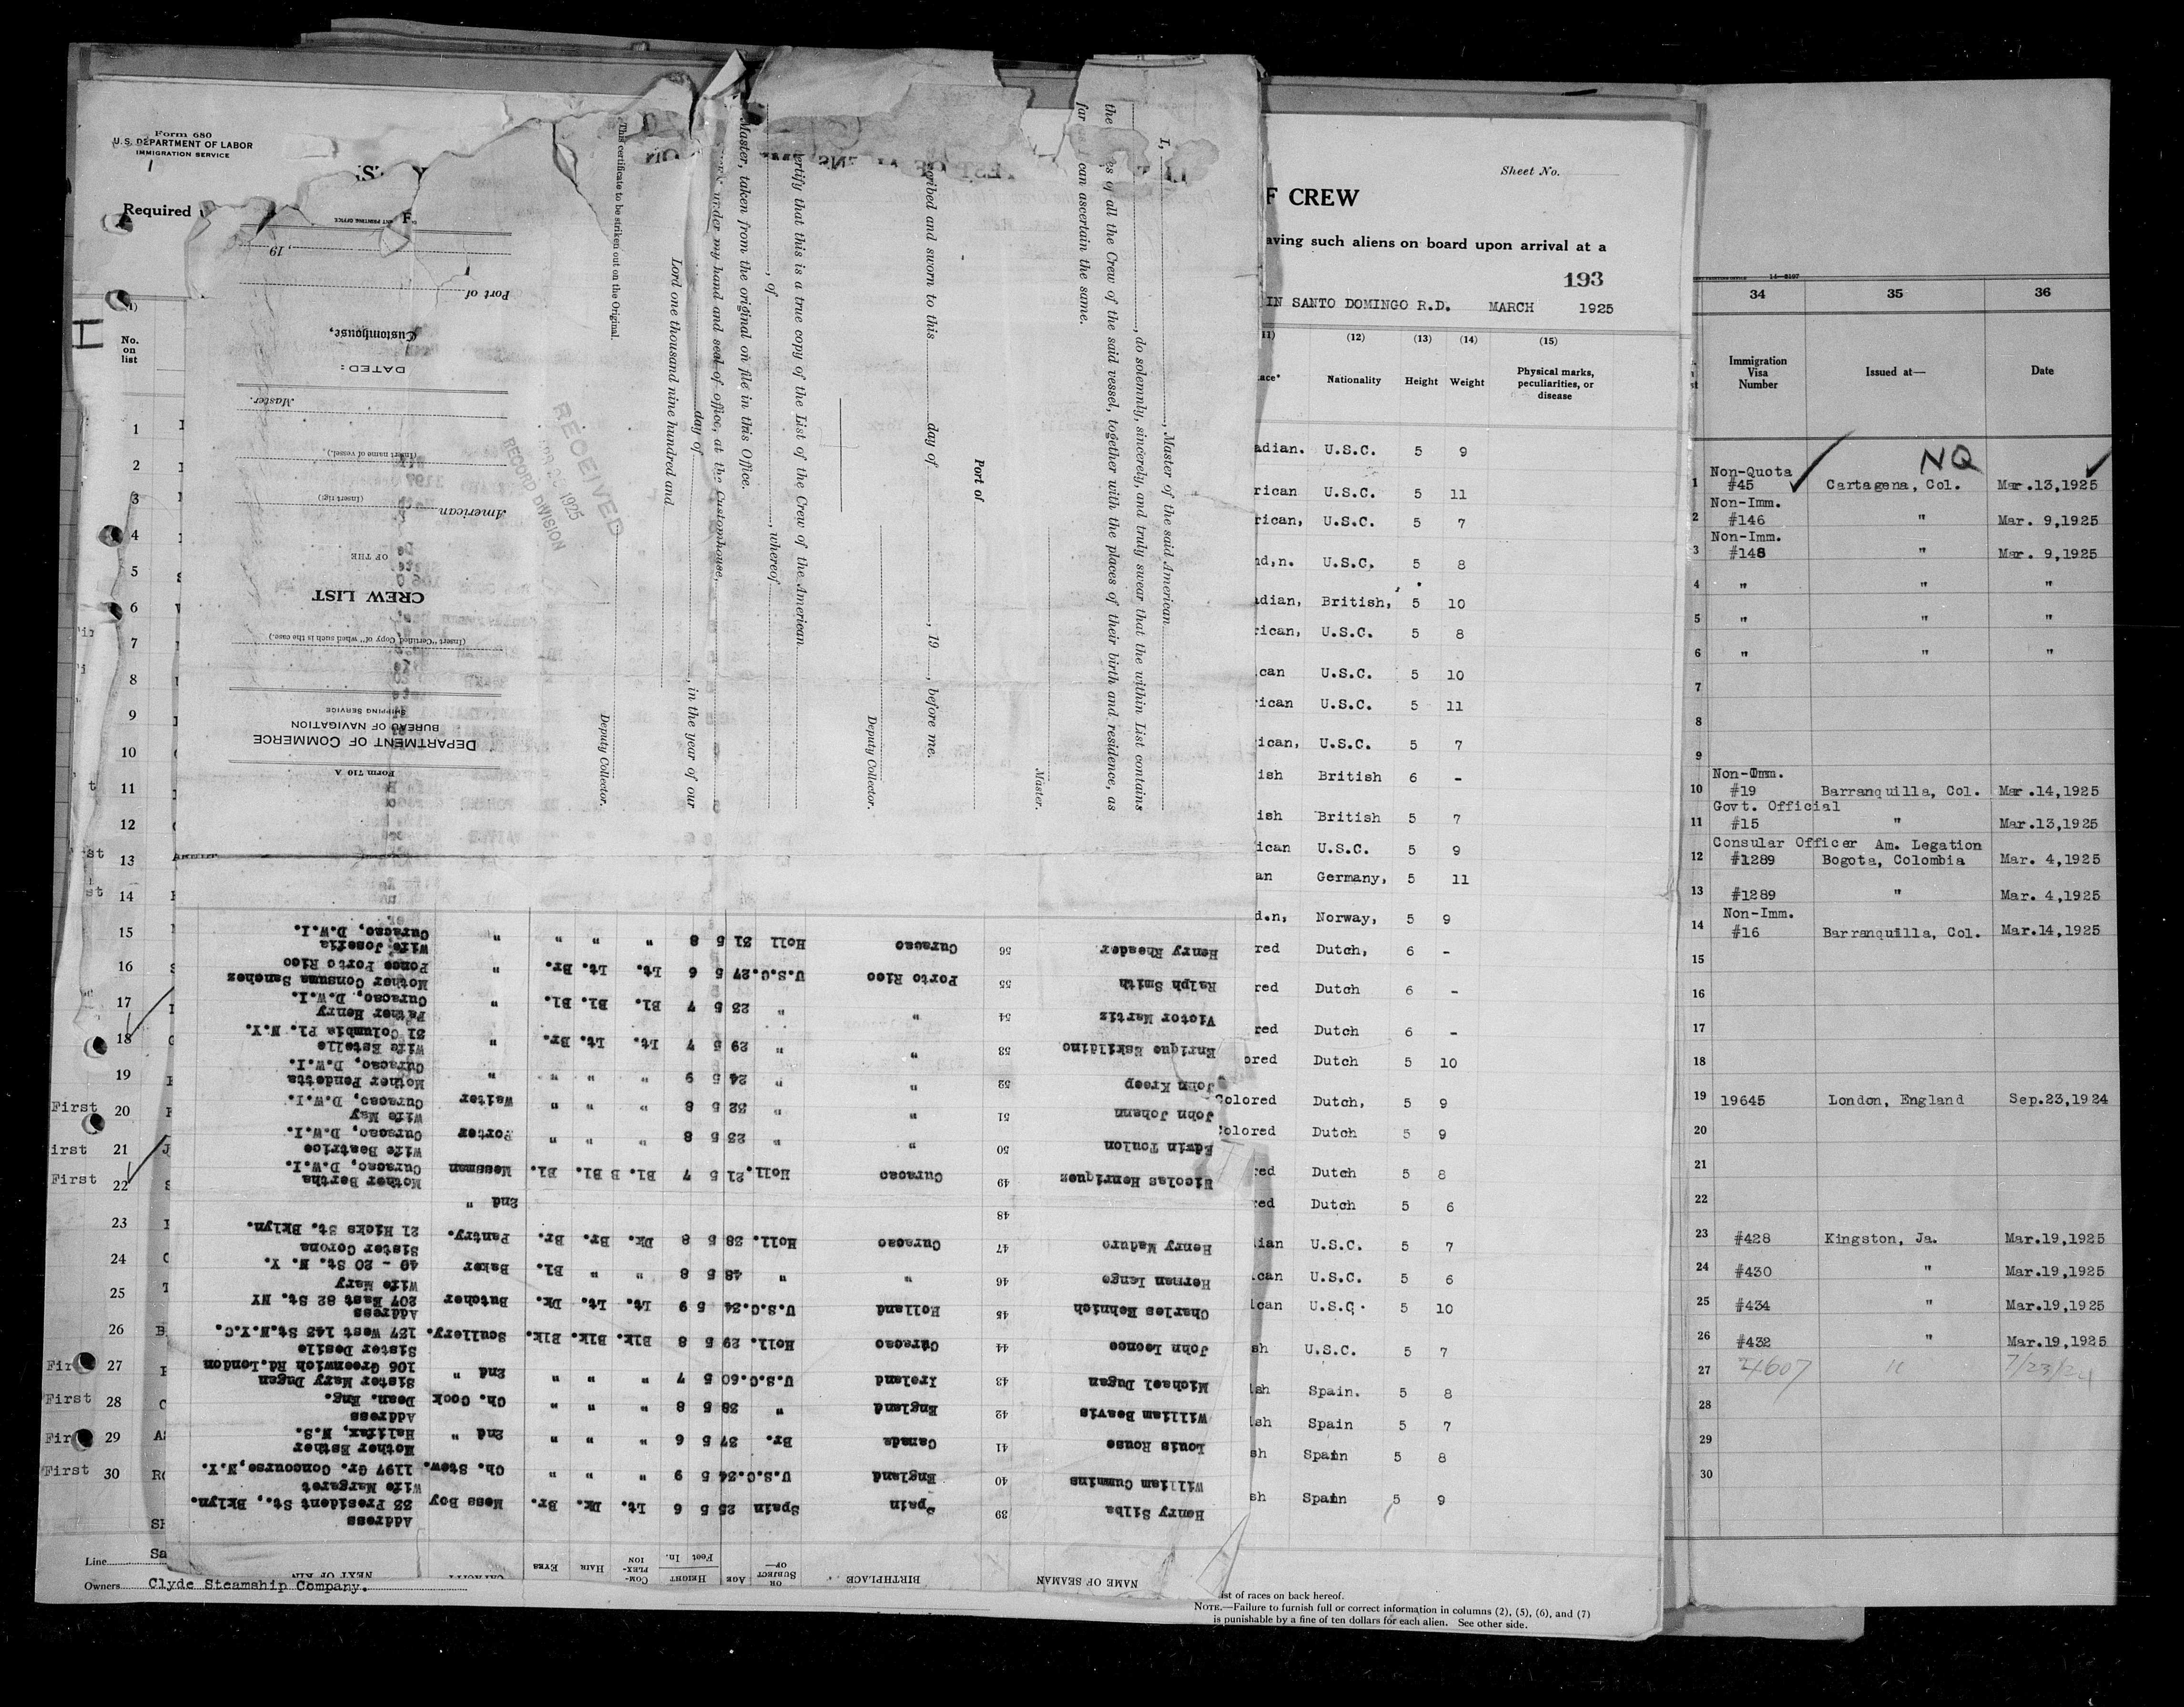 Form 680
U.S. DEPARTMENT OF LABOR
IMMIGRATION SERVICE
Required
No.
on
list
1
2
3
4
5
6
7
8
9
10
11
12
13
14
15
16
17
18
19
First 20
irst 21
First 22
23
24
25
26
Fir 27
First 28
Fir 29
First 30
Line
Owners Clyde Steamship Company.
Form 710 A
DEPARTMENT OF COMMERCE
BUREAU OF NAVIGATION
SHIPPING SERVICE
(Insert "Certified Copy of" when such is the case.)
CREW LIST
OF THE
American
(Insert rig)
(Insert name of vessel.)
Master.
DATED:
Customhouse,
Port of
, 19
RECEIVED
1925
RECORD DIVISION
I, , Master of the said American
, do solemnly, sincerely, and truly swear that the within List contains
the es of all the Crew of the said vessel, together with the places of their birth and residence, as
far can ascertain the same.
Master.
Port of
cribed and sworn to this day of , 19 , before me.
Deputy Collector.
ertify that this is a true copy of the List of the Crew of the American
, of , whereof
Master, taken from the original on file in this Office.
under my hand and seal of office, at the Customhouse,
day of , in the year of our
Lord one thousand nine hundred and
Deputy Collector.
This certificate to be striken out on the Original.
NAME OF SEAMAN BIRTHPLACE OR SUBJECT OF— AGE HEIGHT Feet In. COM-PLEX-ION HAIR EYES NEXT OF KIN
Address
Henry Silba 39 Spain Spain 25 5 6 Lt. Dk. Br. Mess Boy 33 President St., Bklyn.
Wife Margaret
William Cummins 40 England U.S.C. 34 5 9 " " " Ch. Stew. 1197 Gr. Concourse, N.Y.
Mother Esther
Louis Rouse 41 Canada Br. 37 5 6 " " " 2nd " Halifax, N.S.
Address
William Beavis 42 England " 38 5 8 " " " Ch. Cook Dean. Eng.
Sister Mary Dugen
Michael Dugan 43 Ireland U.S.C. 60 5 7 " " " 2nd " 106 Greenwich Rd. London
Sister Desile
John Leonce 44 Curacao Holl. 29 5 8 Blk. Blk. Blk. Scullery. 137 West 143 St. N.Y.C.
Address
Charles Behnich 45 Holland U.S.C. 34 5 9 Lt. Lt. Dk. Butcher 207 East 82 St. NY
Wife Mary
Herman Lenge 46 " " 48 5 8 " " Bl. Baker 40 - 20 St. N. Y.
Sister Corona
Henry Maduro 47 Curacao Holl. 38 5 8 Dk. Br. Br. Pantry. 21 Hicks St. Bklyn.
48 2nd "
Mother Bertha
Nicolas Henriquez 49 Curacao Holl. 21 5 7 Bl. B Bl. Bl. Messman Curacao, D.W.I.
Wife Beatrice
Edwin Toulon 50 " " 23 5 8 " " " Porter Curacao, D.W.I.
Wife May
John Johann 51 " " 32 5 8 " " " Waiter Curacao, D.W.I.
Mother Pendetta
John Kroep 52 " " 24 5 9 " " " " Curacao, D.W.I.
Wife Estelle
Enrique Eskildino 53 " " 29 5 7 Lt. Lt. Br. " 31 Columbia Pl. N.Y.
Father Henry
Victor Martiz 54 " " 23 5 7 Bl. Bl. Bl. " Curacao, D.W.I.
Mother Consuma Sanchez
Ralph Smith 55 Porto Rico U.S.C. 27 5 6 Lt. Lt. Br. " Ponce Porto Rico
Wife Josefia
Henry Rheader 56 Curacao Holl 31 5 8 " " " " Curacao, D.W.I.
Sheet No.
F CREW
aving such aliens on board upon arrival at a
193
IN SANTO DOMINGO R.D. MARCH 1925
(12) (13) (14) (15)
Nationality Height Weight Physical marks, peculiarities, or disease
adian. U.S.C. 5 9
rican U.S.C. 5 11
rican, U.S.C. 5 7
nd,n. U.S.C. 5 8
adian, British, 5 10
rican, U.S.C. 5 8
ican U.S.C. 5 10
rican U.S.C. 5 11
ican, U.S.C. 5 7
ish British 6 -
ish British 5 7
ican U.S.C. 5 9
an Germany, 5 11
d.n, Norway, 5 9
red Dutch, 6 -
red Dutch 6 -
red Dutch 6 -
ored Dutch 5 10
Colored Dutch, 5 9
olored Dutch 5 9
red Dutch 5 8
red Dutch 5 6
ian U.S.C. 5 7
ican U.S.C. 5 6
ican U.S.C. 5 10
sh U.S.C. 5 7
ish Spain. 5 8
ish Spain 5 7
sh Spain 5 8
sh Spain 5 9
ist of races on back hereof.
NOTE.—Failure to furnish full or correct information in columns (2), (5), (6), and (7)
is punishable by a fine of ten dollars for each alien. See other side.
34 35 36
Immigration Visa Number Issued at— Date
NQ
Non-Quota
1 #45 Cartagena, Col. Mar.13,1925
Non-Imm.
2 #146 " Mar. 9,1925
Non-Imm.
3 #148 " Mar. 9,1925
4 " " "
5 " " "
6 " " "
7
8
9
Non-Imm.
10 #19 Barranquilla, Col. Mar.14,1925
Govt. Official
11 #15 " Mar.13,1925
Consular Officer Am. Legation
12 #1289 Bogota, Colombia Mar. 4,1925
13 #1289 " Mar. 4,1925
Non-Imm.
14 #16 Barranquilla, Col. Mar.14,1925
15
16
17
18
19 19645 London, England Sep.23,1924
20
21
22
23 #428 Kingston, Ja. Mar.19,1925
24 #430 " Mar.19,1925
25 #434 " Mar.19,1925
26 #432 " Mar.19,1925
27 4607 " 7/23/24
28
29
30